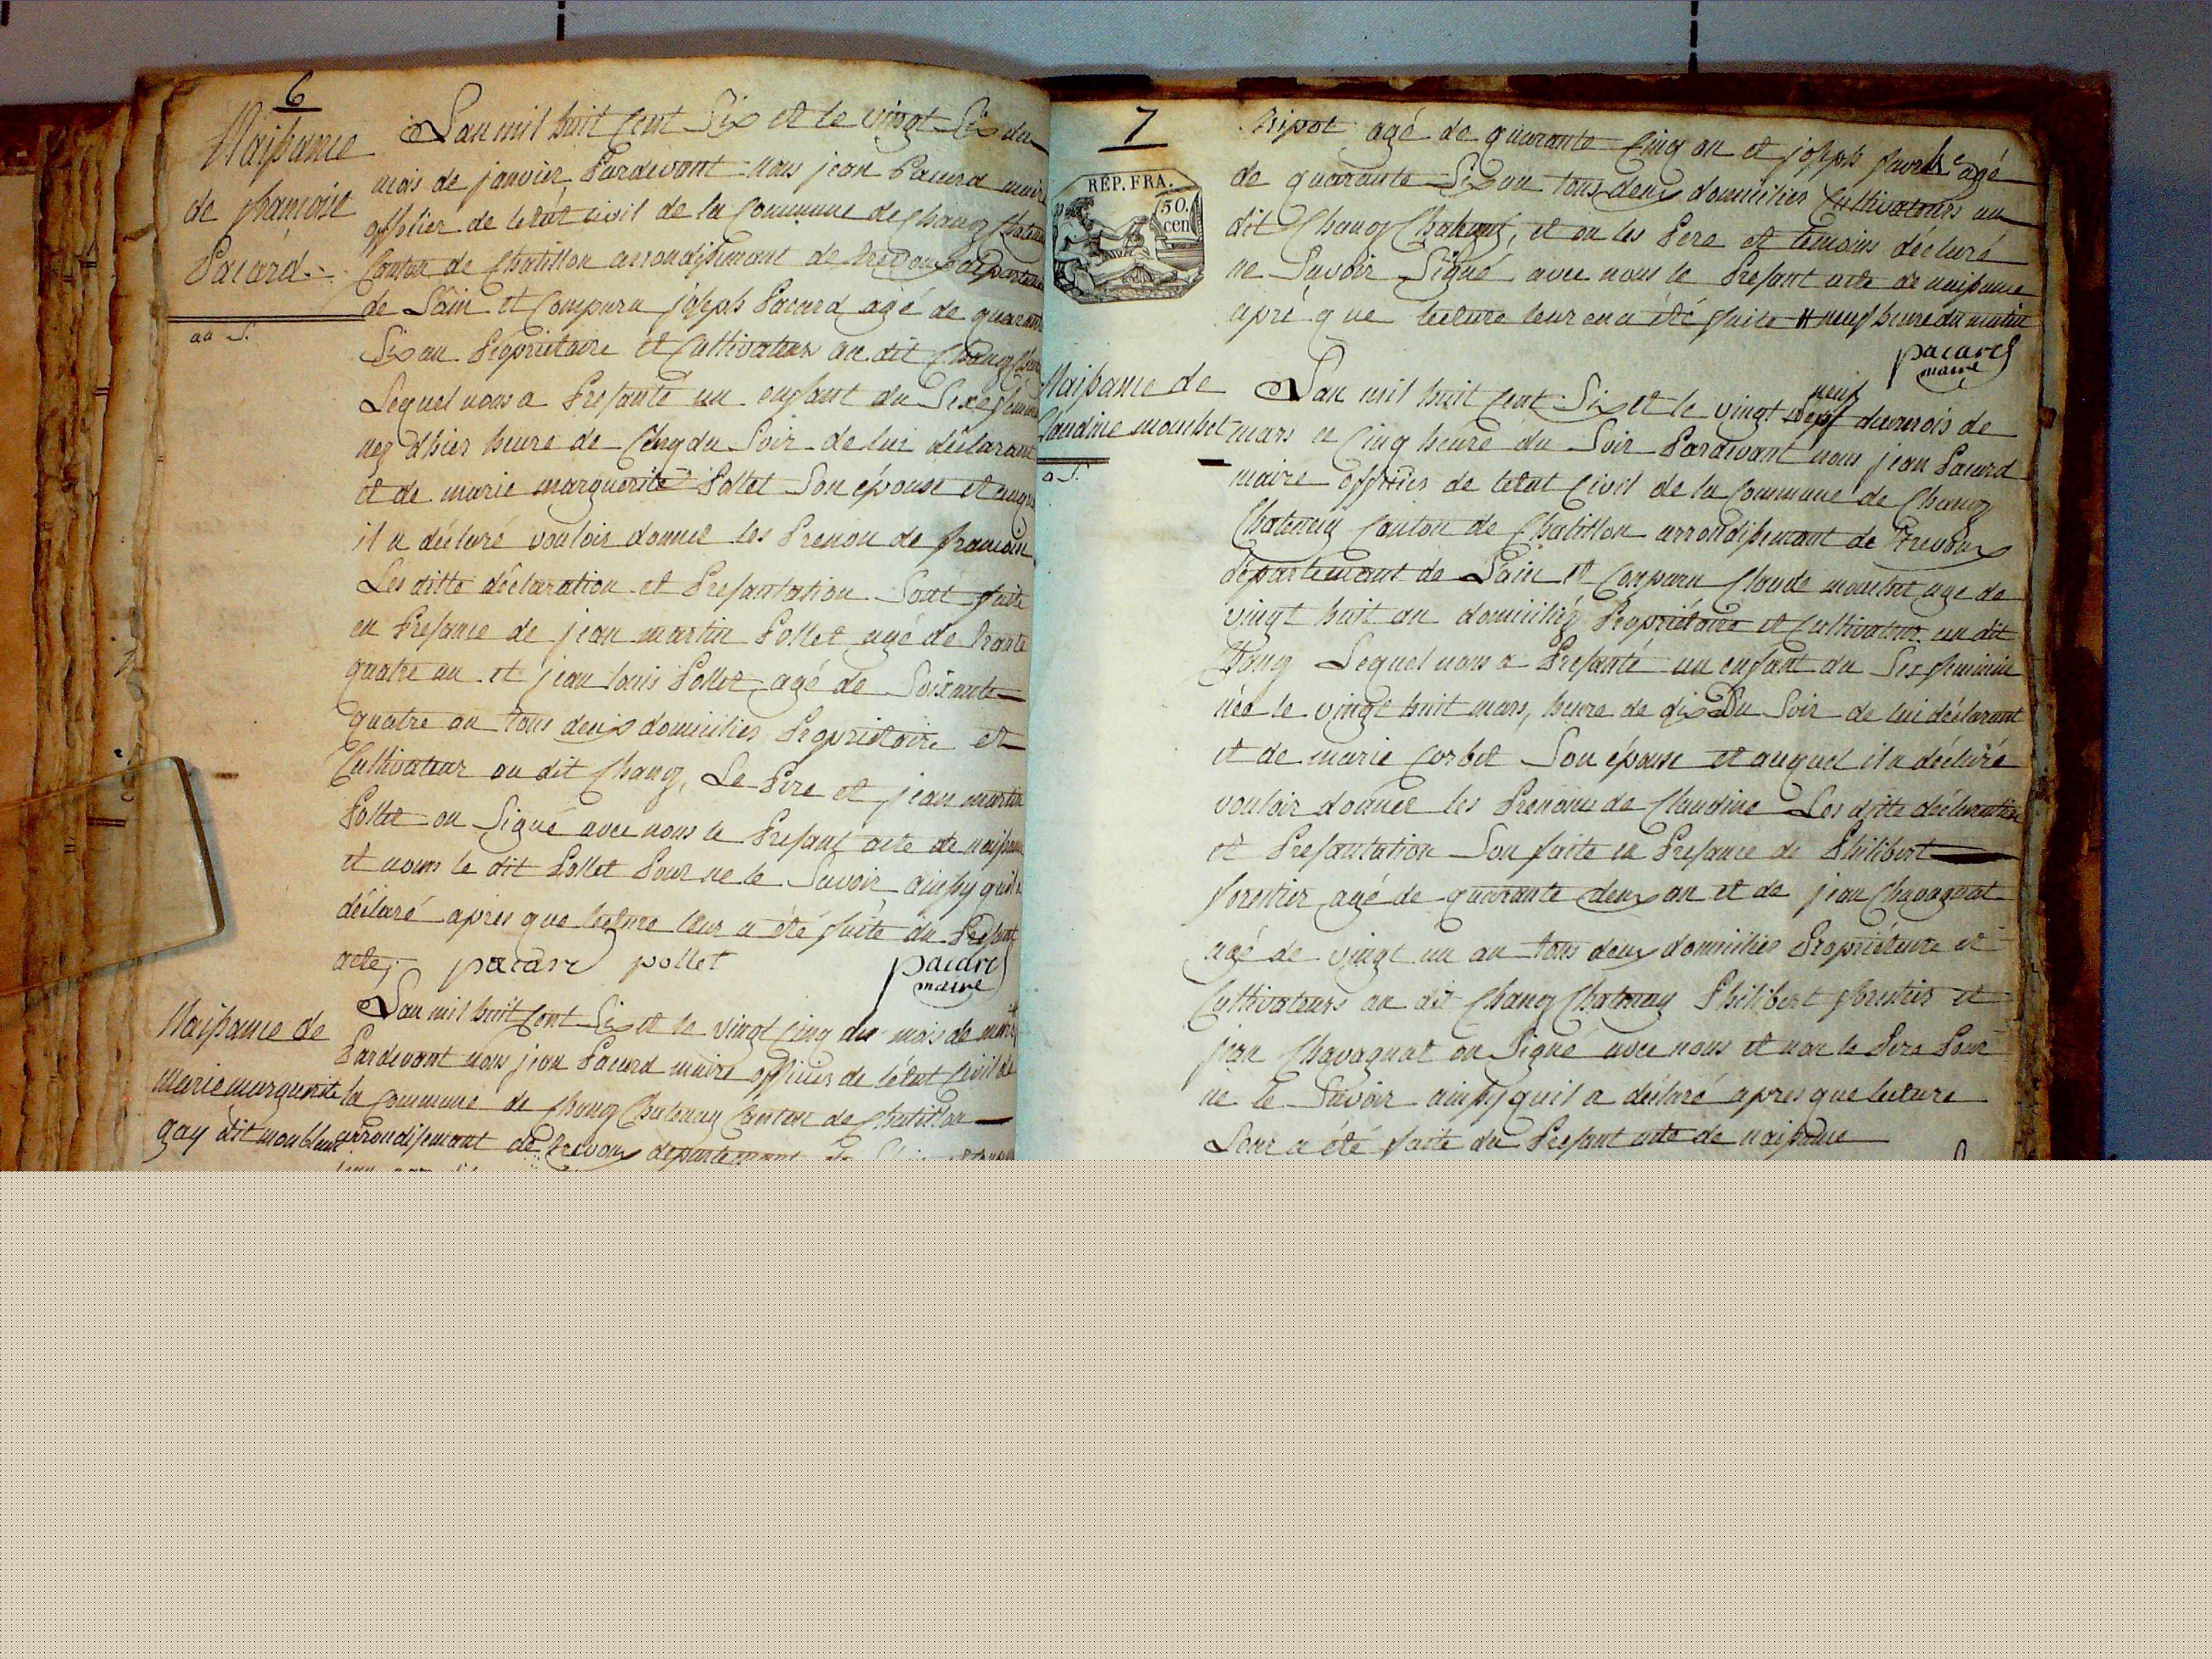 6
Naissance
de françoise
Pacard
aa S.
Lan mil huit Cent Six et le vingt Six du
mois de janvier Pardevant nous jean Pacard maire
officier de letat civil de la Commune de Chanoz Chatenay
Canton de Chatillon arrondissement de trevoux departement
de Lain et Comparu joseph Pacard agé de quarante
Six an Propriétaire et Cultivateur au dit Chanoz
Lequel nous a Presanté un enfant du Sexe feminin
nez dhier heure de Cinq du Soir de lui déclarant
et de marie marguerite Pollet Son épouse et auquel
il a déclaré vouloir donner les Prenon de françoise
Les ditte déclaration et Presantation Sont faite
en Presance de jean martin Pollet agé de trante
quatre an et jean louis Pollet agé de Soixante
quatre an tous deux domicilies Propriétaire et
Cultivateur au dit Chanoz, Le Pere et jean martin
Pollet on Signé avec nous le Presant acte de naissance
et nous le dit Pollet Pour ne le Savoir ainsy quil a
déclaré apres que lecture leur a été faite du Presant
acte, pacard pollet pacard
maire
Naissance de
marie marguerite
gay dit monblanc
Lan mil huit Cent Six et le vingt Cinq du mois de mars
Pardevant nous jean Pacard maire officier de létat Civil de
la Commune de Chanoz Chatenay Canton de Chatillon
arrondissement de trevoux departement
7
REP. FRA.
50.
cen
tripot agé de quarante Cinq an et joseph agé
de quarante Six an tous deux domicilies Cultivateurs au
dit Chanoz Chatenay, et on les Pere et temoins déclaré
ne Savoir Signé avec nous le Presant acte de naissance
apré que lecture leur en a été faite # neuf heure du matin
pacard
maire
Naissance de
Claudine mouchet
a S.
Lan mil huit Cent Six et le vingt neuf du mois de
mars a Cinq heure du Soir Pardevant nous jean Pacard
maire officier de letat Civil de la Commune de Chanoz
Chatenay Canton de Chatillon arrondissement de Trevoux
département de Lain et Comparu Claude mouchet age de
vingt huit an domicilié Propriétaire et Cultivateur au dit
Chanoz Lequel nous a Presanté un enfant du Sex feminin
née le vingt huit mars, heure de dix Du Soir de lui déclarant
et de marie Corbet Son épouse et auquel il a déclaré
vouloir donner les Prenoms de Claudine Les ditte déclaration
et Presantation Son faite en Presance de Philibert
forestier agé de quarante deux an et de jean Chavagnat
agé de vingt un an tous deux domicilies Propriétaire et
Cultivateurs au dit Chanoz Chatenay Philibert forestier et
jean Chavagnat on Signé avec nous et non le Pere Pour
ne le Savoir ainsy quil a déclaré apres que lecture
Leur a été faite du Presant acte de naissance